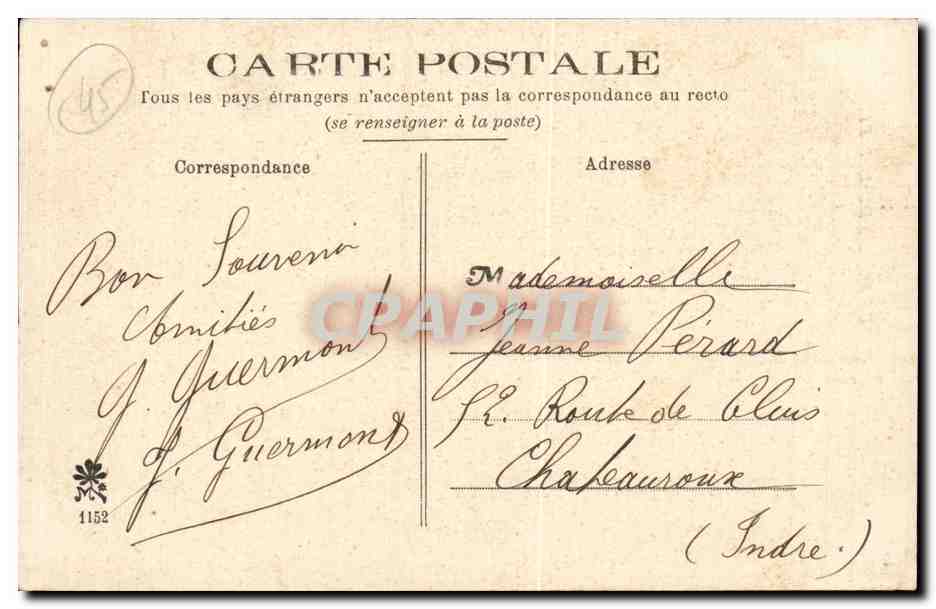 CARTE POSTALE
45
Tous les pays étrangers n'acceptent pas la correspondance au recto
(se renseigner à la poste)
Correspondance
Bon Souvenir
Amitiés
J. Guermont
J. Guermont
1152
Adresse
Mademoiselle
Jeanne Pérard
52. Route de Cluis
Chateauroux
(Indre.)
CPAPHIL